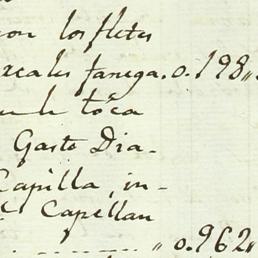 con los fletes
reales fanega. 0.198„
le tóca
Gasto Dia-
Capilla, in-
Capellan
„ 0.962„